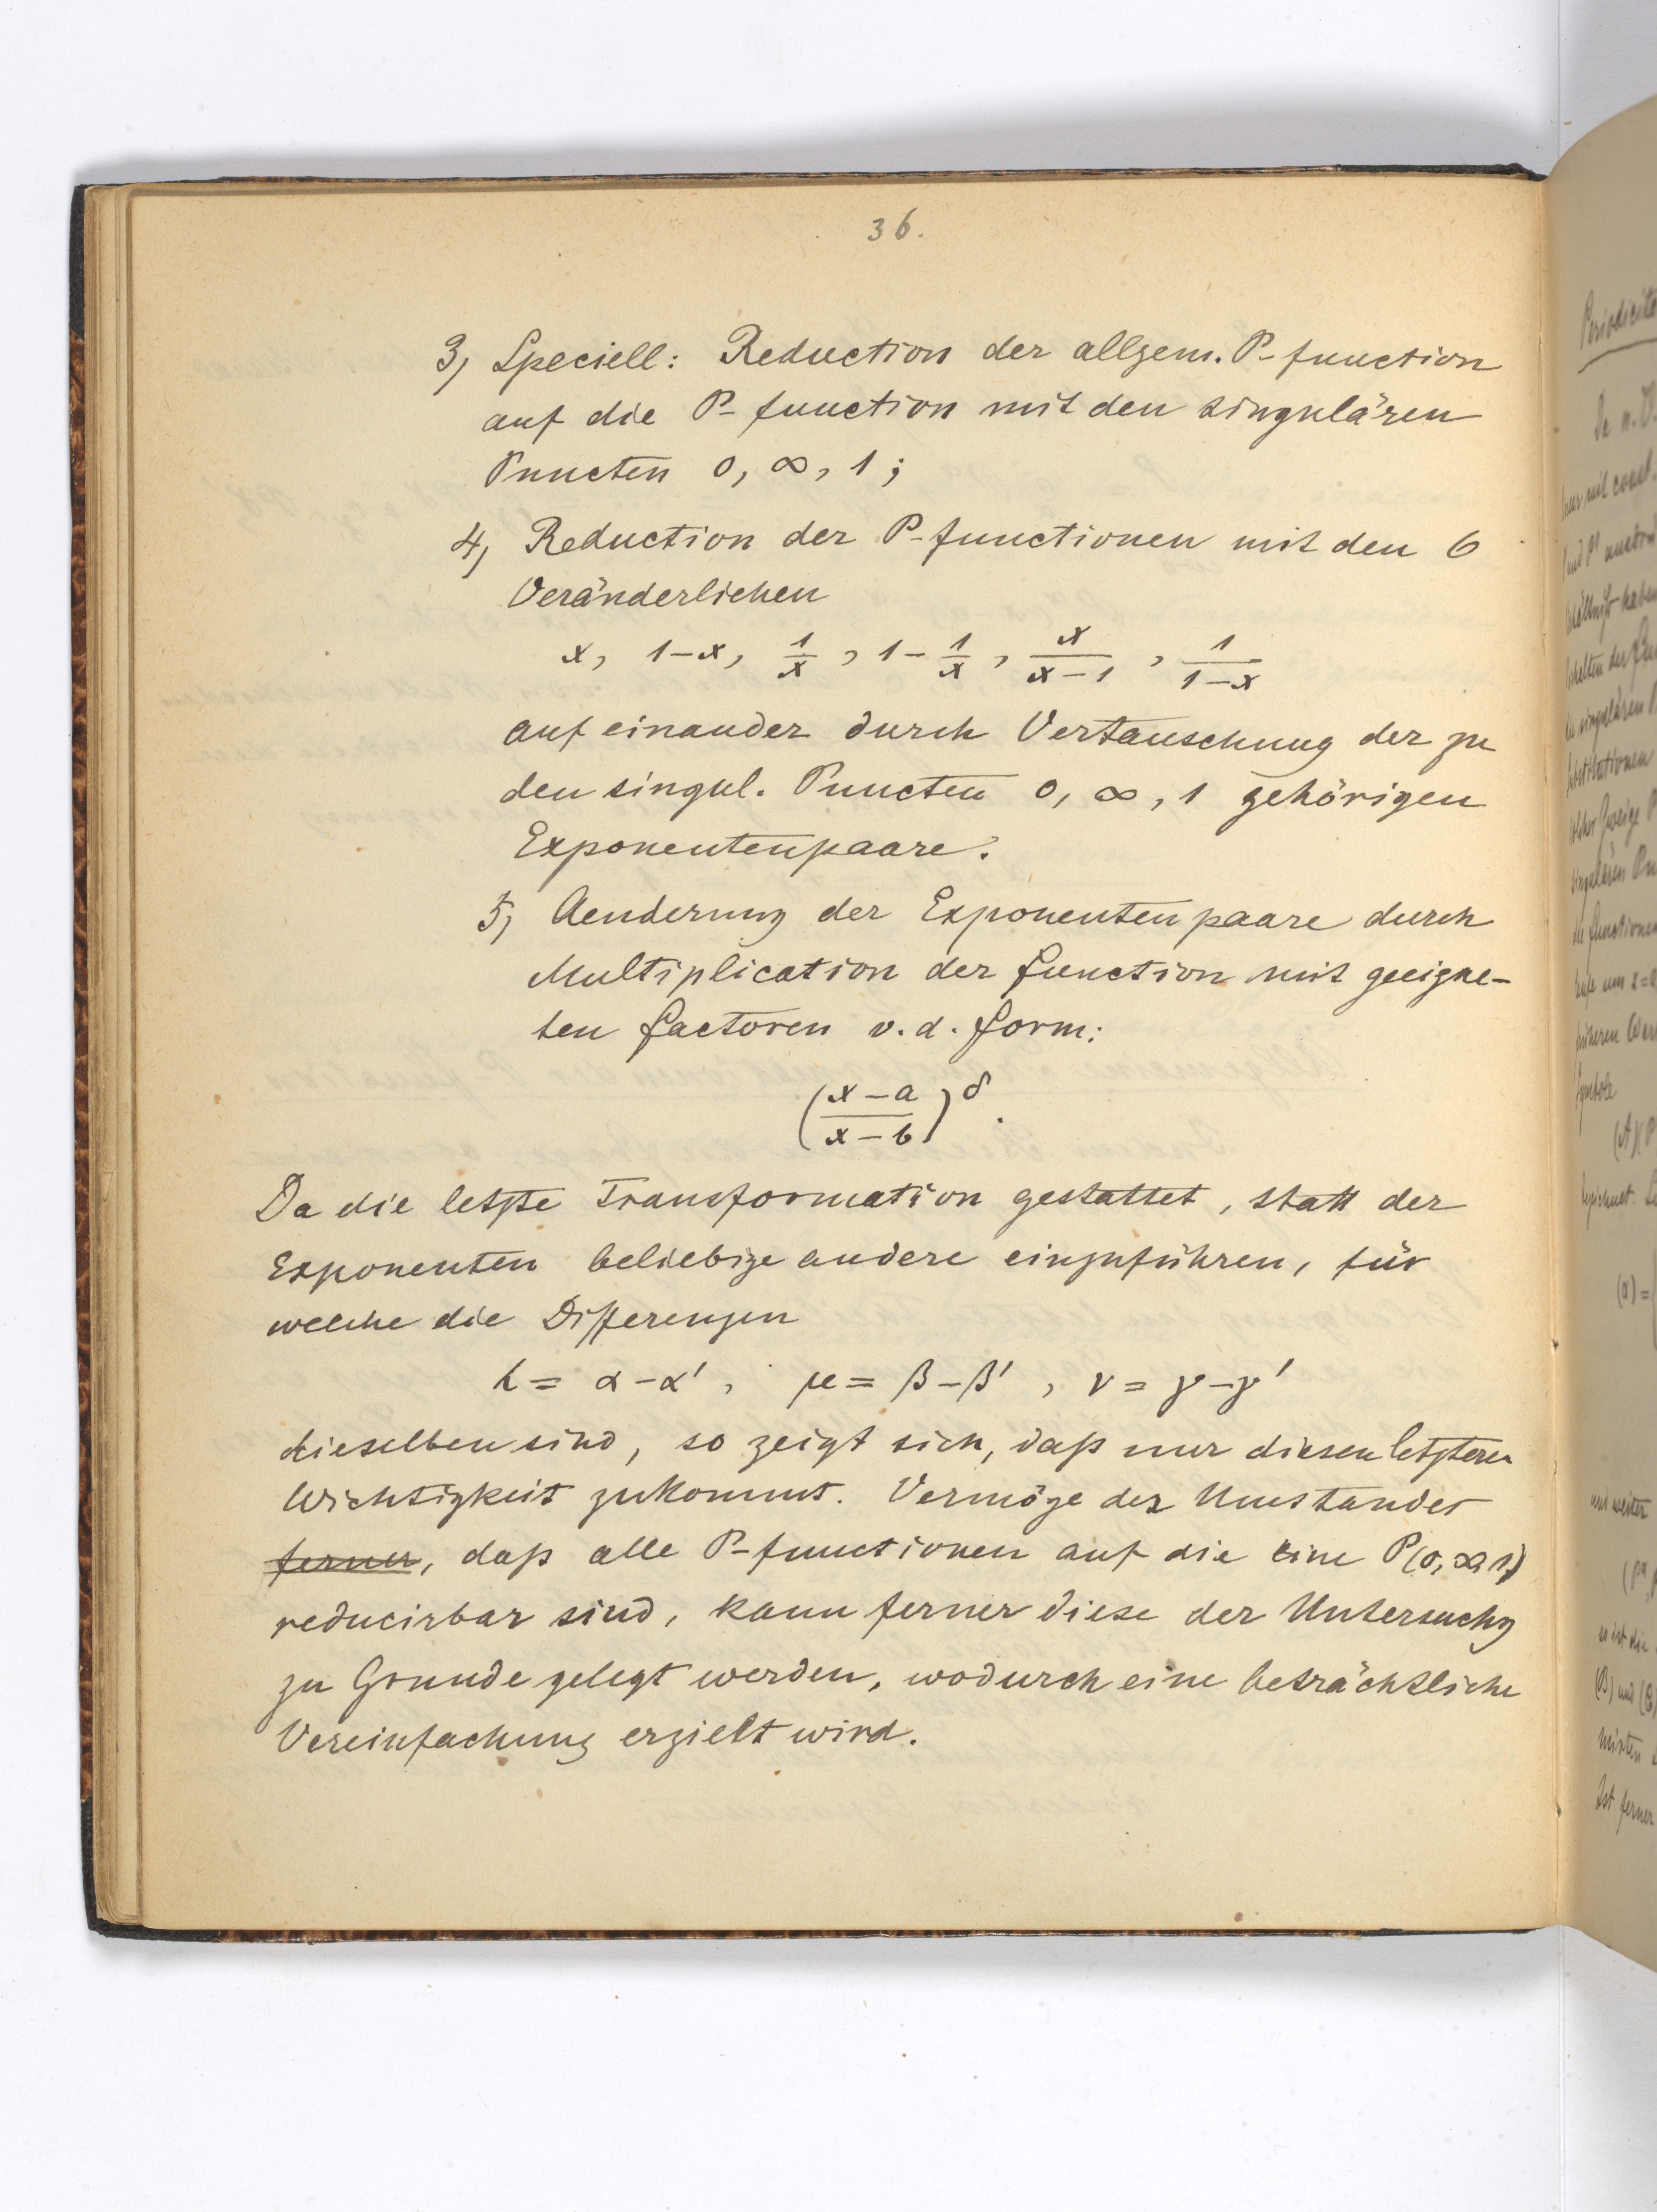 36.
3) Speciell: Reduction der allgem. P-function
auf die P-function mit den singulären
Puncten 0, ∞, 1;
4) Reduction der P-functionen mit den 6
Veränderlichen
x, 1-x, 1/x, 1-1/x, x/(x-1), 1/(1-x)
auf einander durch Vertauschung der zu
den singul. Puncten 0, ∞, 1 gehörigen
Exponentenpaare.
5) Aenderung der Exponentenpaare durch
Multiplication der function mit geeigne-
ten factoren v. d. form:
((x-a)/(x-b))^δ.
Da die letzte Transformation gestattet, statt der
Exponenten beliebige andere einzuführen, für
welche die Differenzen
λ = α-α', μ = β-β', ν = γ-γ'
dieselben sind, so zeigt sich, daß nur diesen letzteren
Wichtigkeit zukommt. Vermöge des Umstandes
ferner, daß alle P-functionen auf die eine P(0,∞,1)
reducirbar sind, kann ferner diese der Untersuchg
zu Grunde gelegt werden, wodurch eine beträchtliche
Vereinfachung erzielt wird.